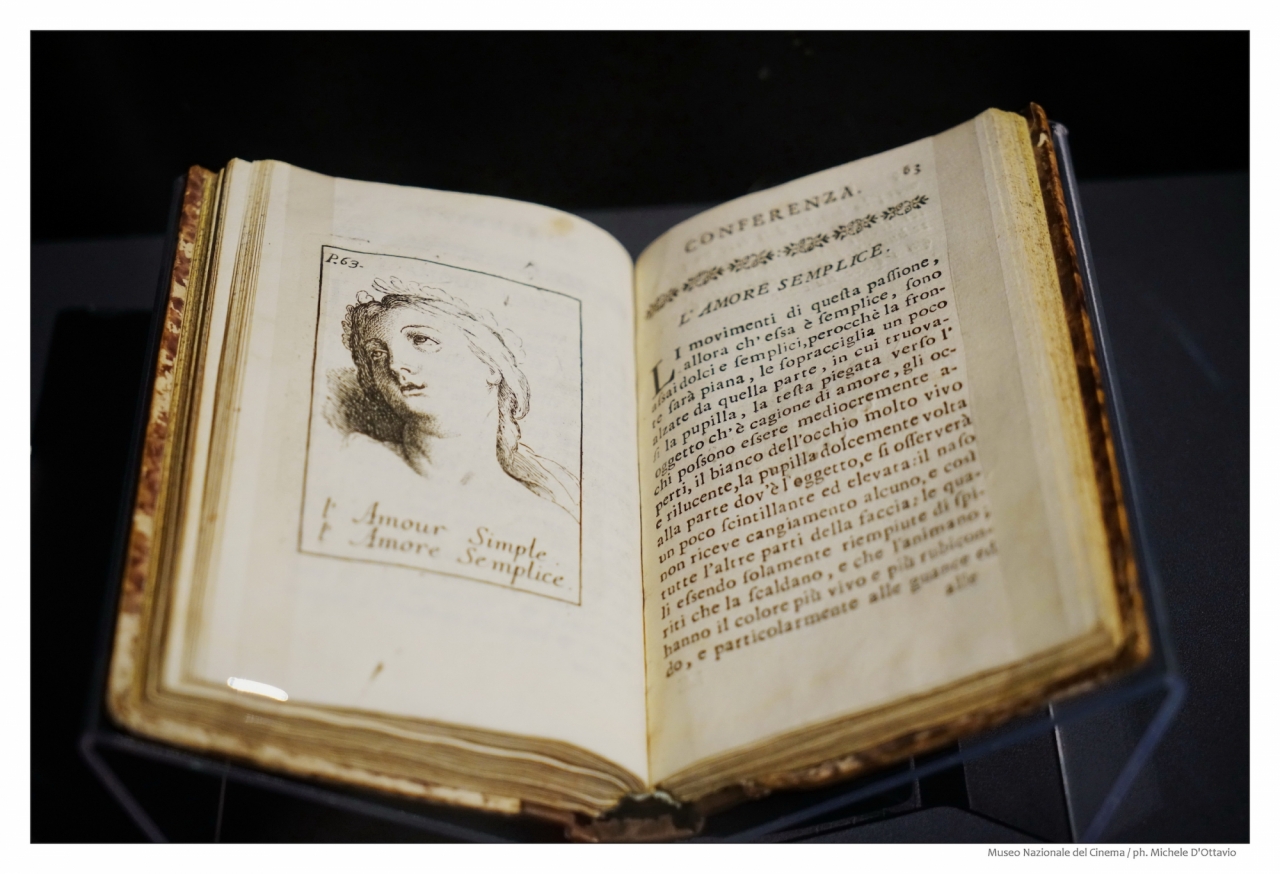 P.63.
l' Amour Simple.
l' Amore Semplice.
CONFERENZA. 63
L' AMORE SEMPLICE.
LI movimenti di queſta paſſione,
allora ch' eſsa è ſemplice, ſono
aſsai dolci e ſemplici, perocchè la fron-
te ſarà piana, le ſopracciglia un poco
alzate da quella parte, in cui truova-
ſi la pupilla, la teſta piegata verſo l'
oggetto ch' è cagione di amore, gli oc-
chi poſsono eſsere mediocremente a-
perti, il bianco dell'occhio molto vivo
e rilucente, la pupilla dolcemente volta
alla parte dov'è l'oggetto, e ſi oſſerverà
un poco ſcintillante ed elevata: il naſo
non riceve cangiamento alcuno, e così
tutte l'altre parti della faccia; le qua-
li eſsendo ſolamente riempiute di ſpi-
riti che la ſcaldano, e che l'animano,
hanno il colore più vivo e più rubicon-
do, e particolarmente alle guance ed
alle
Museo Nazionale del Cinema / ph. Michele D'Ottavio